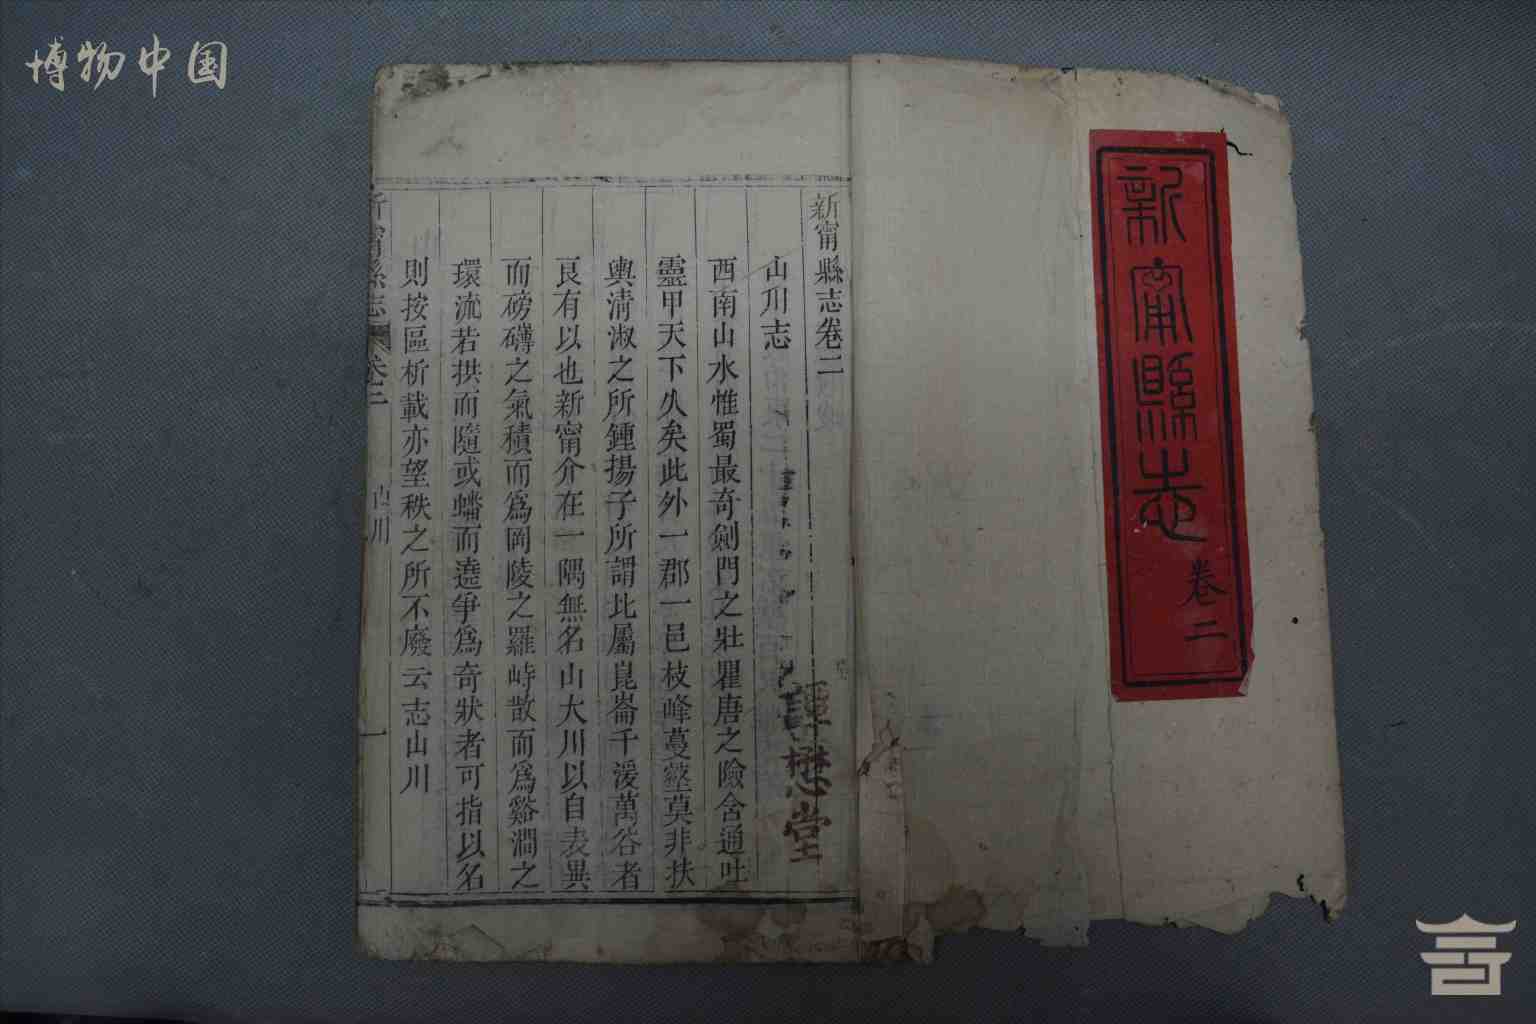 博物中国
新甯縣志
卷二
新甯縣志卷二
山川志
西南山水惟蜀最奇劍門之壯瞿唐之險含通吐
靈甲天下久矣此外一郡一邑枝峰蔓壑莫非扶
輿清淑之所鍾揚子所謂北屬崑崙千湲萬谷者
良有以也新甯介在一隅無名山大川以自表異
而磅礴之氣積而為岡陵之羅峙散而為谿澗之
環流若拱而隨或蟠而遶爭為奇狀者可指以名
則按區析載亦望秩之所不廢云志山川
新甯縣志 卷二 山川 一
譚懋堂